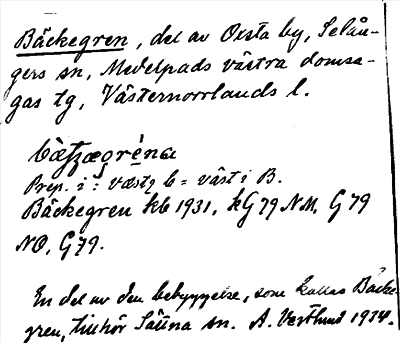 Bäckegren, del av Örsta by, Selån-
gers sn, Medelpads västra domsa-
gas tg, Västernorrlands l.
Prep. i : västi b = väst i B.
Bäckegren kb 1931, kG79 NM, G79
NO, G79.
En del av den bebyggelse, som kallas Bäcke-
gren, tillhör Sättna sn. A. Vestlund 1934.